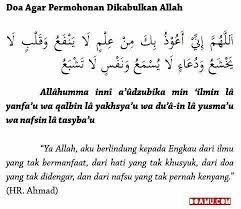 Doa Agar Permohonan Dikabulkan Allah
اَللّٰهُمَّ إِنِّي أَعُوْذُ بِكَ مِنْ عِلْمٍ لَا يَنْفَعُ وَقَلْبٍ لَا
يَخْشَعُ وَدُعَاءٍ لَا يُسْمَعُ وَنَفْسٍ لَا تَشْبَعُ
Allâhumma inni a'ûdzubika min 'ilmin lâ
yanfa'u wa qalbin lâ yakhsya'u wa du'â-in lâ yusma'u
wa nafsin lâ tasyba'u
"Ya Allah, aku berlindung kepada Engkau dari ilmu
yang tak bermanfaat, dari hati yang tak khusyuk, dari doa
yang tak didengar, dan dari nafsu yang tak pernah kenyang."
(HR. Ahmad)
DOAMU.COM